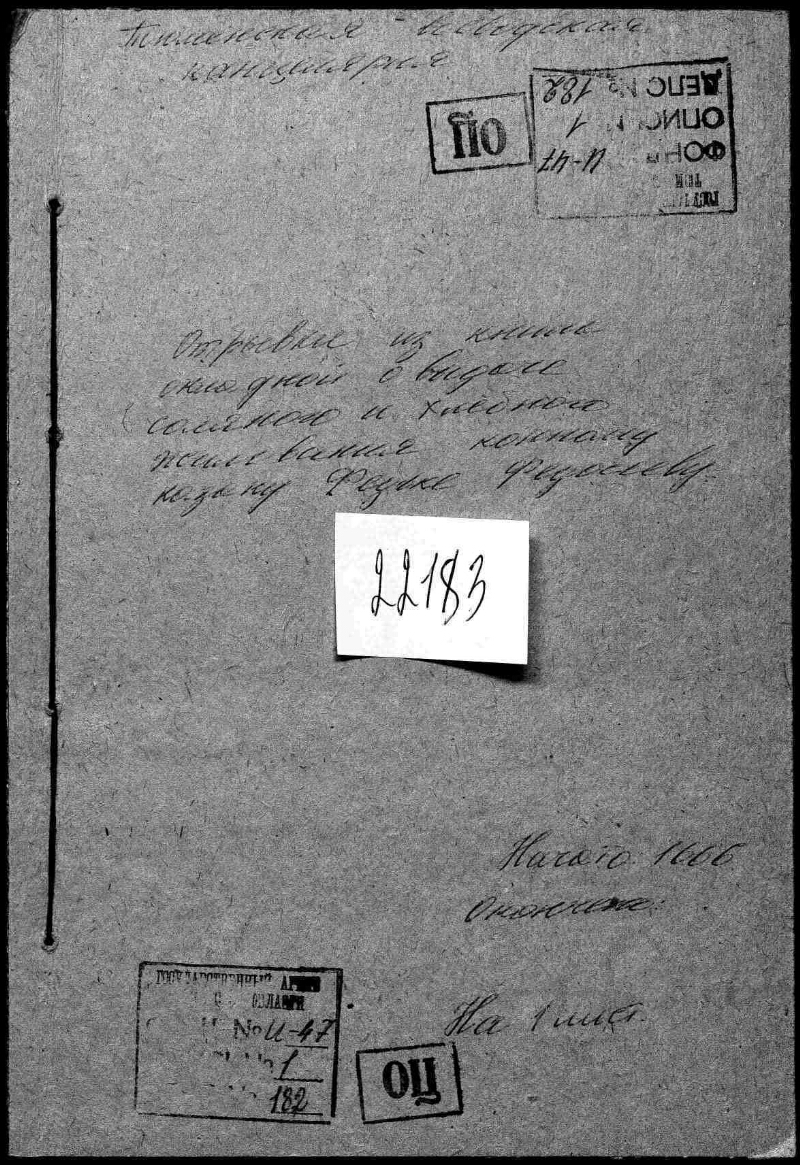 Тюменская воеводская
канцелярия
ОЦ
ДЕЛО № 182
ОПИСЬ № 1
ФОНД И-47
Отрывки из книги
окладной о выдаче
соляного и хлебного
жалования конному
казаку Федьке
22183
Начато 1666
Окончено:
На 1 лист.
ГОСУДАРСТВЕННЫЙ АРХИВ
ОБЛАСТИ
№ И-47
1
182
ОЦ